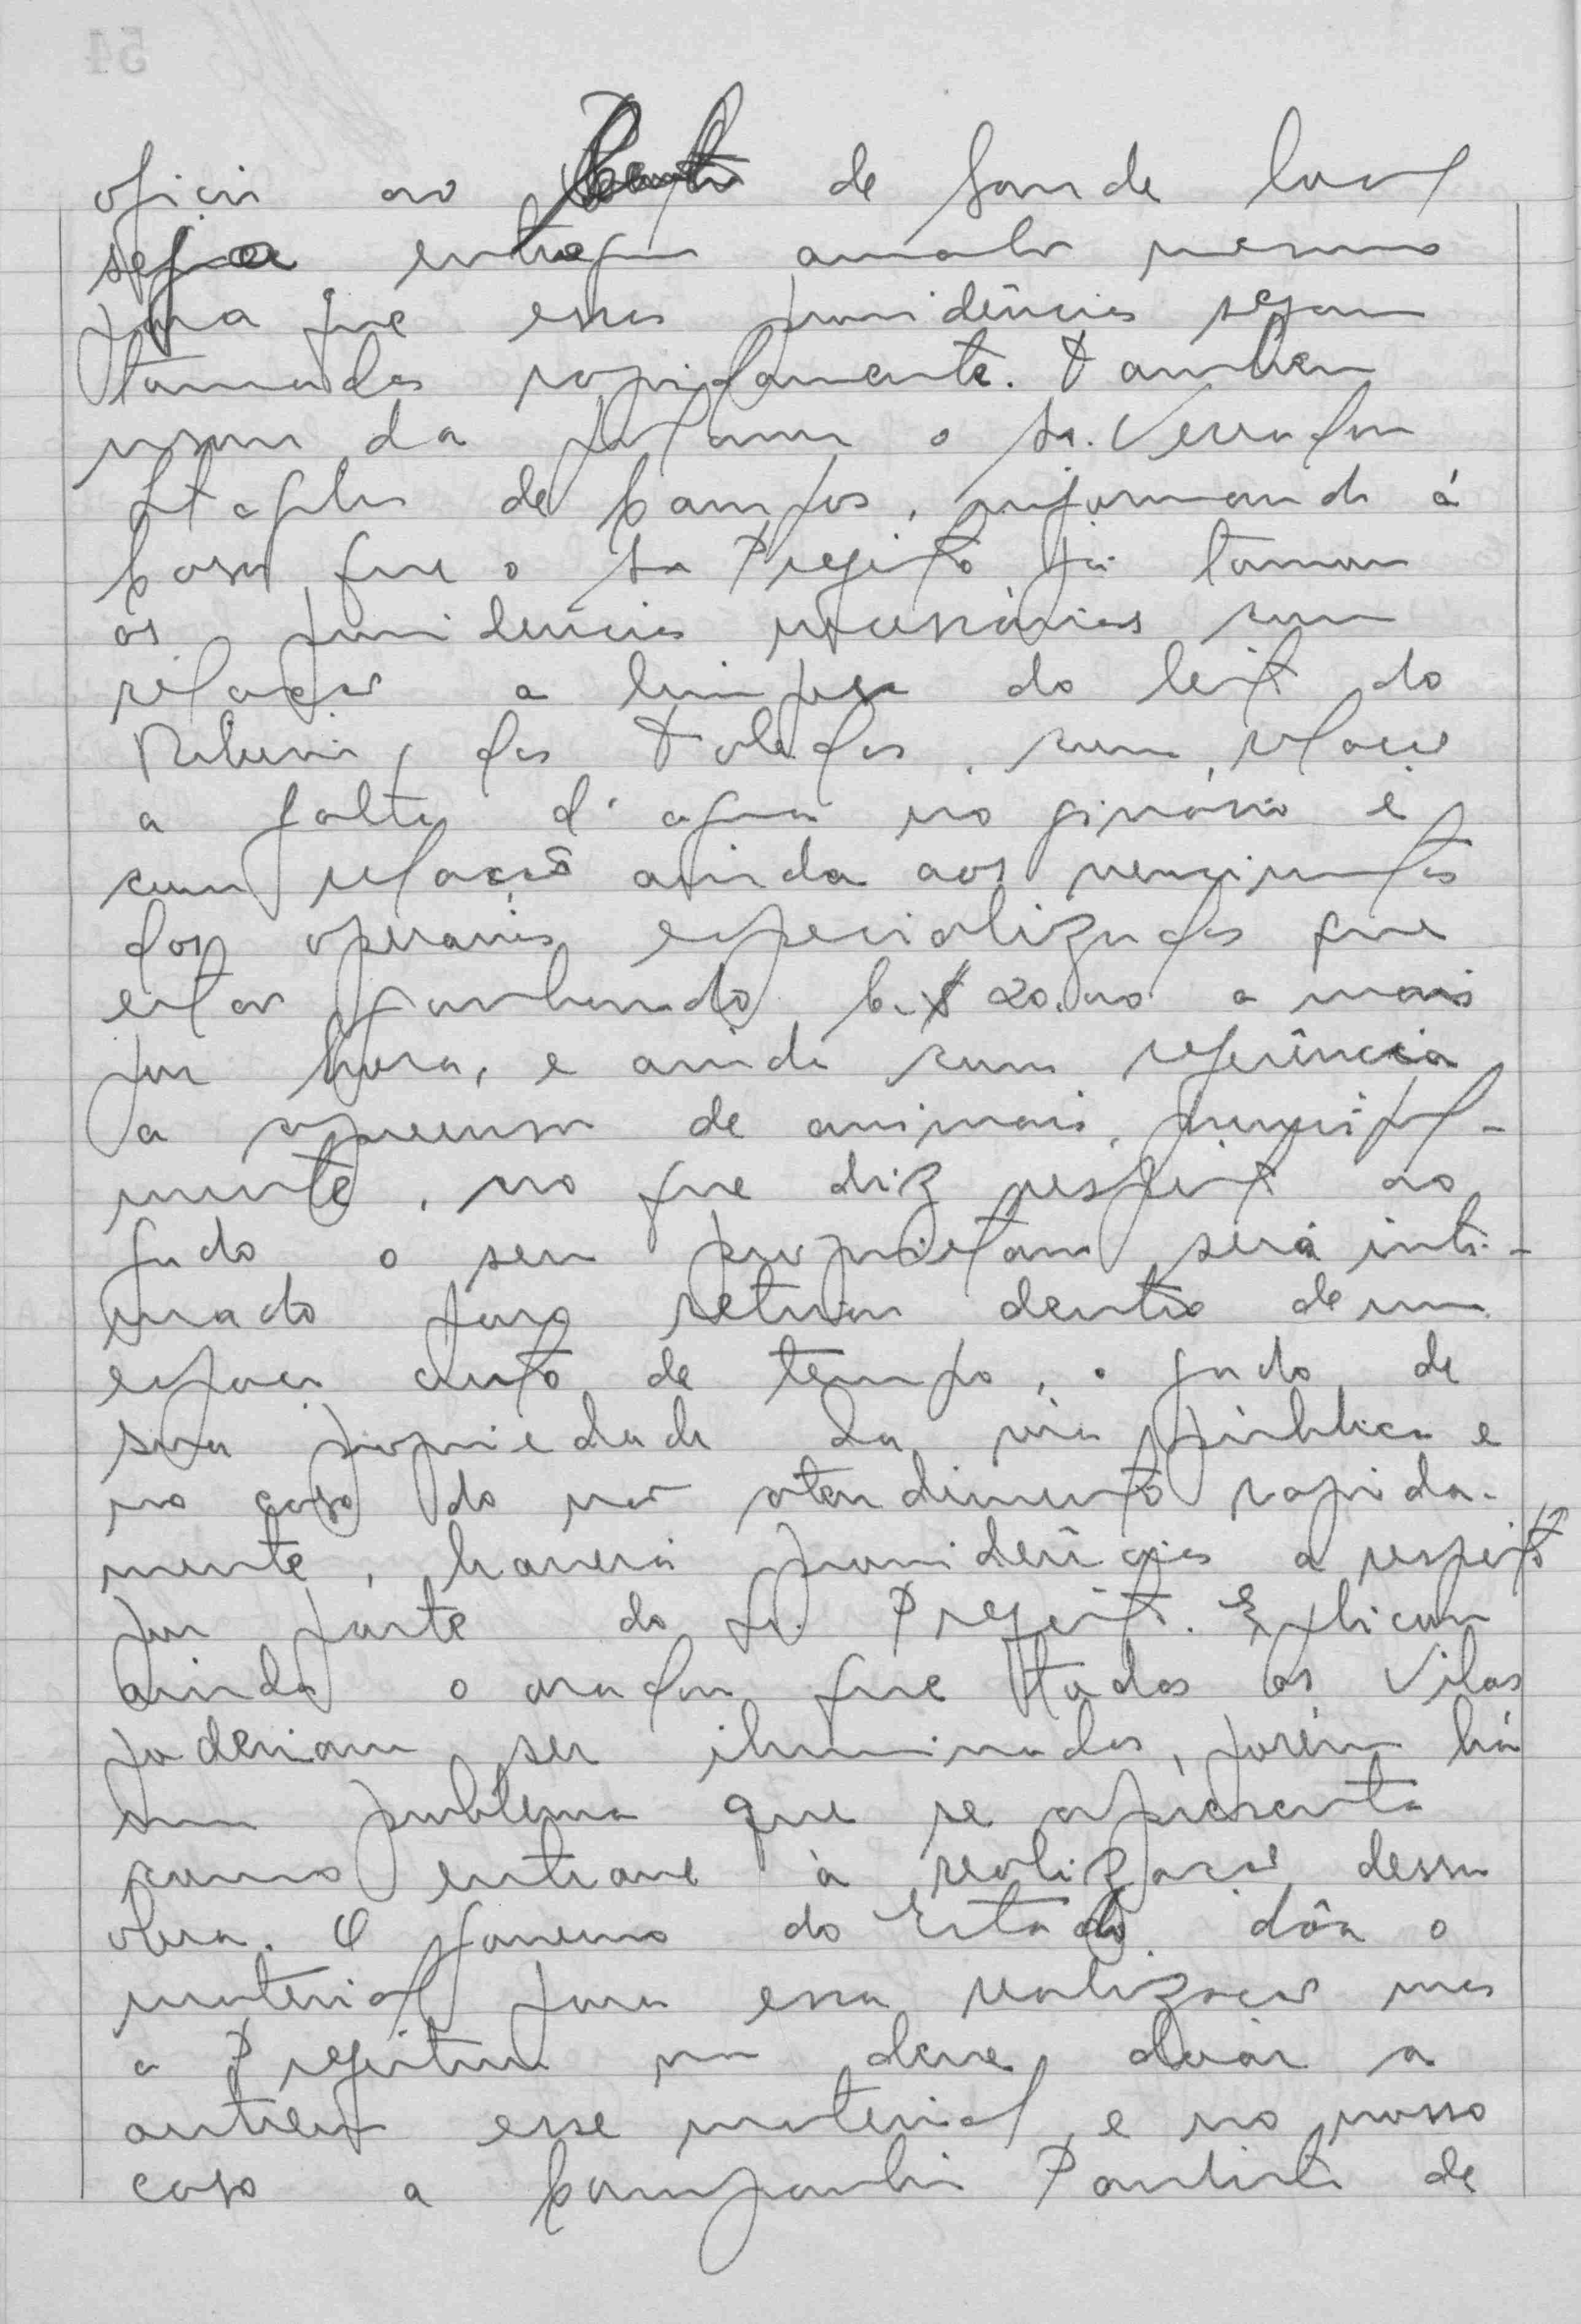 oficio ao Centro de Saude local
seja entregue amanhã mesmo
para que essas providências sejam
tomadas rapidamente. Tambem
usou da palavra o Sr. Vereador
de Campos, informando á
Casa que o Sr Prefeito já tomou
as providências necessárias com
relação a limpesa do leito do
Ribeirão dos Toledos, com relação
a falta d'agua no ginásio e
com relação ainda aos vencimentos
dos operarios especializados que
estão ganhando Cr$ 20,00 a mais
por hora, e ainda com referência
a apreensão de animais, principal-
mente, no que diz respeito ao
gado o seu proprietario será inti-
mado para retirar dentro de um
espaço curto de tempo, o gado de
sua propriedade da via pública e
no caso do não atendimento rapida-
mente, haverá providências a respeito
por parte do Sr. Prefeito. Explicou
ainda o orador que todas as Vilas
poderiam ser iluminadas, porém há
um problema que se apresenta
como entrave à realização dessa
obra. O Governo do Estado dôa o
material para essa realização mas
a Prefeitura não deve doar a
outrem esse material e no nosso
caso a Companhia Paulista de